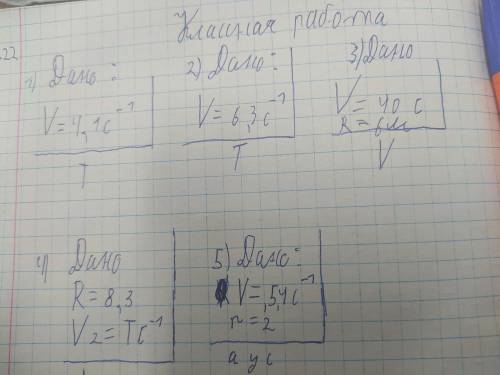 22
Классная работа
1) Дано:
V = 4,1 с⁻¹
T
2) Дано:
V = 6,3 с⁻¹
T
3) Дано
V = 40 с
R = 6м
V
4) Дано
R = 8,3
V 2 = T с⁻¹
5) Дано:
V = 5,4 с⁻¹
n = 2
а у с